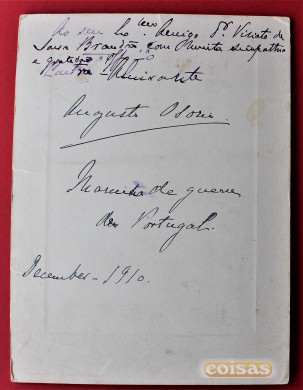 Ao seu . Amigo Dr. Vicente de
Sousa Brandão com muita sympathia
e gratidão
Almirante
Augusto Osorio
Marinha de guerra
de Portugal.
December - 1910.
coisas